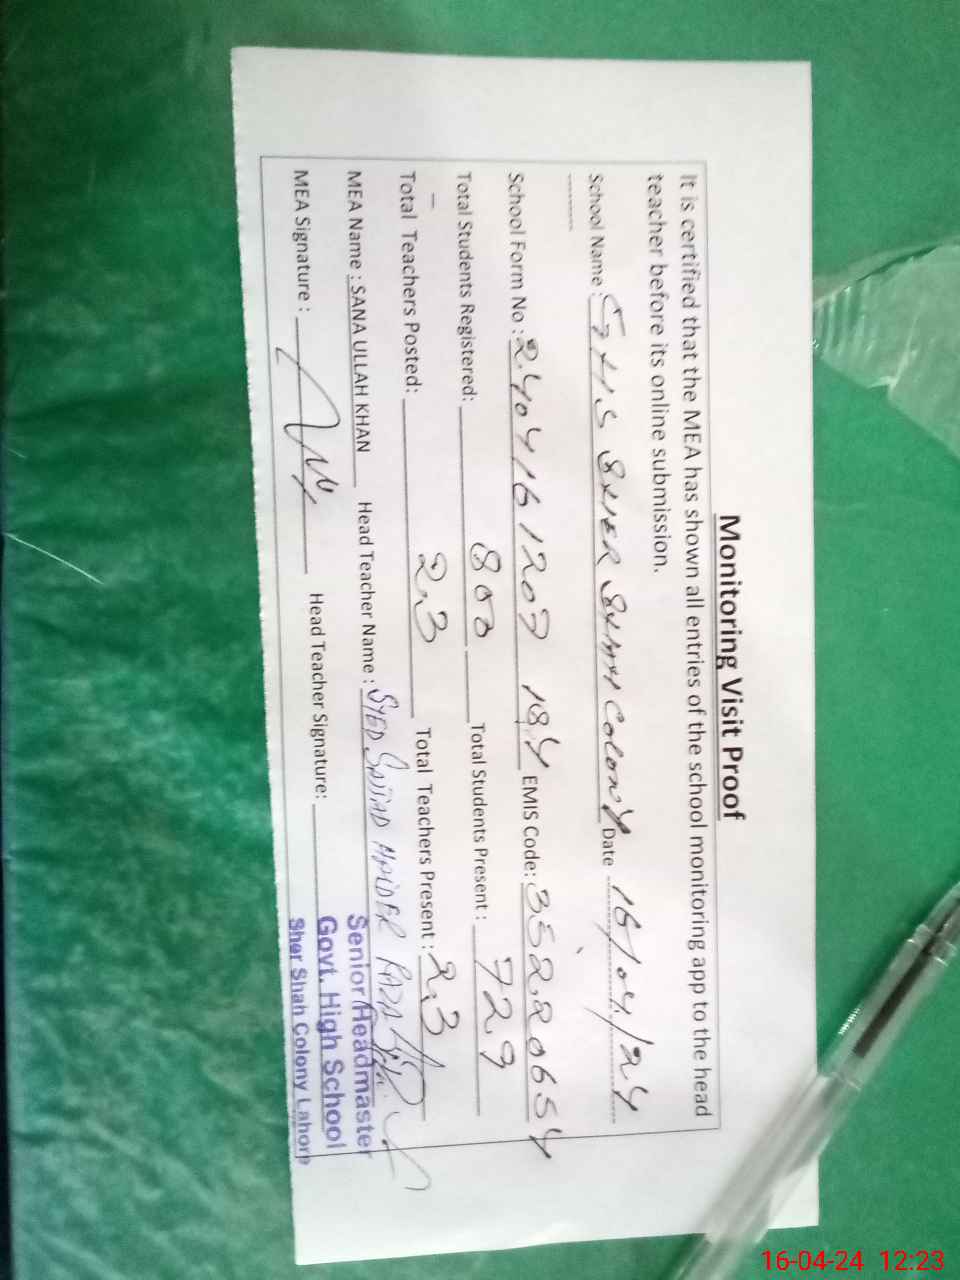 Monitoring Visit Proof
It is certified that the MEA has shown all entries of the school monitoring app to the head
teacher before its online submission.
School Name : GHS SHER SHAH COLONY Date 16/04/24
School Form No : 2404161203 184 EMIS Code: 35220654
Total Students Registered: 803 Total Students Present : 729
Total Teachers Posted: 23 Total Teachers Present : 23
MEA Name : SANA ULLAH KHAN Head Teacher Name : SYED SAJJAD HAIDER RAZA
MEA Signature : Head Teacher Signature:
Senior Headmaster
Govt. High School
Sher Shah Colony Lahore
16-04-24 12:23